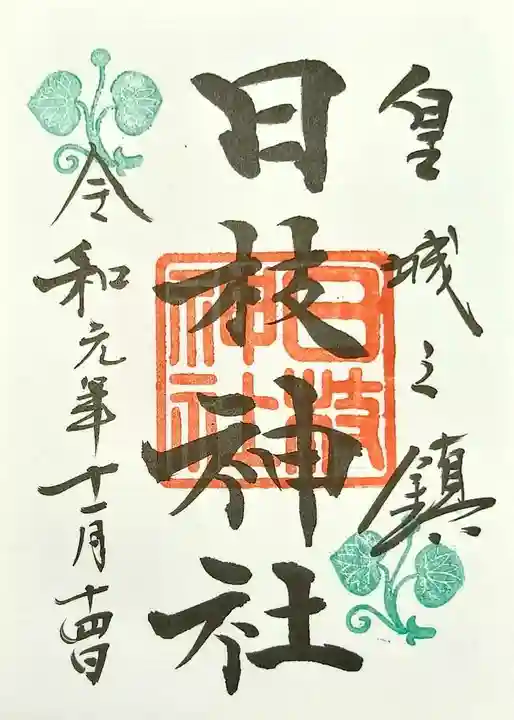 皇城之鎮
日枝神社
日枝神社
令和元年十一月十四日